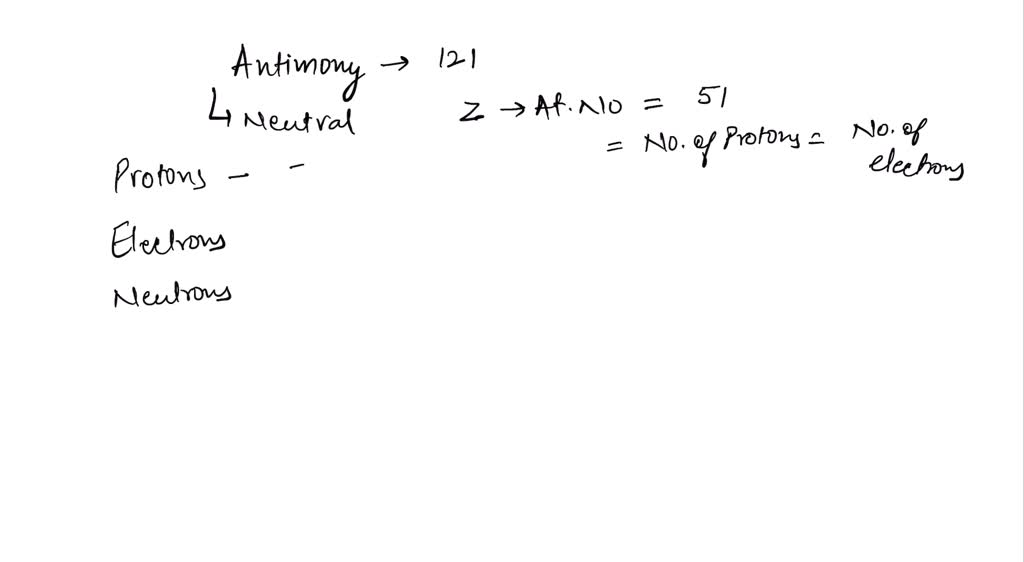 Antimony → 121
↳ Neutral
Z → At. No = 51
= No. of Protons = No. of electrons
Protons -
Electrons
Neutrons